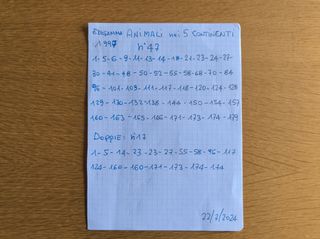 EDIGAMMA ANIMALI nei 5 CONTINENTI
1997
N°47
1-5-6-9-11-13-14-18-21-23-24-27
30-41-48-50-52-55-58-68-70-84
96-101-109-111-117-118-120-124-128
129-130-132-138-144-150-154-157
160-163-165-166-171-173-174-179
DOPPIE: N°17
1-5-14-23-23-27-55-58-96-117
124-160-160-171-173-174-174
22/2/2024